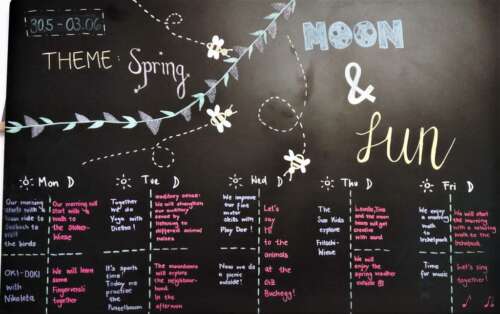 30.5 - 03.06
THEME: Spring
MOON
&
Sun
Mon D
Tue D
Wed D
Thu D
Fri D
Our morning
starts with
ride to
the birds
Our morning
will start
with
walk to
the
Together
we do
Yoga with
auditory sense:
We will strengthen
our auditory
sense by
listening to
different animal
noises
We improve
our fine
motor skills
with
Play Doh!
Let's
say
Hi
to the
animals
at
the
GZ
Buchegg!
The
Sun Kids
explore
Fritschi-
Wiese
the moon
bears will get
creative
with sand
We enjoy
a walking
walk to
We will start
the morning
with a
walk to the
OKI-DOKI
with
Nikoleta
We will
learn some
Fingerversli
together
It's sports
time
Today we
practise
the
The moonbears
will explore
the neighbour-
hood
In the
afternoon
Now we do
a picnic
outside!
We will
enjoy the
spring weather
outside
Time
for music
Let's sing
together!